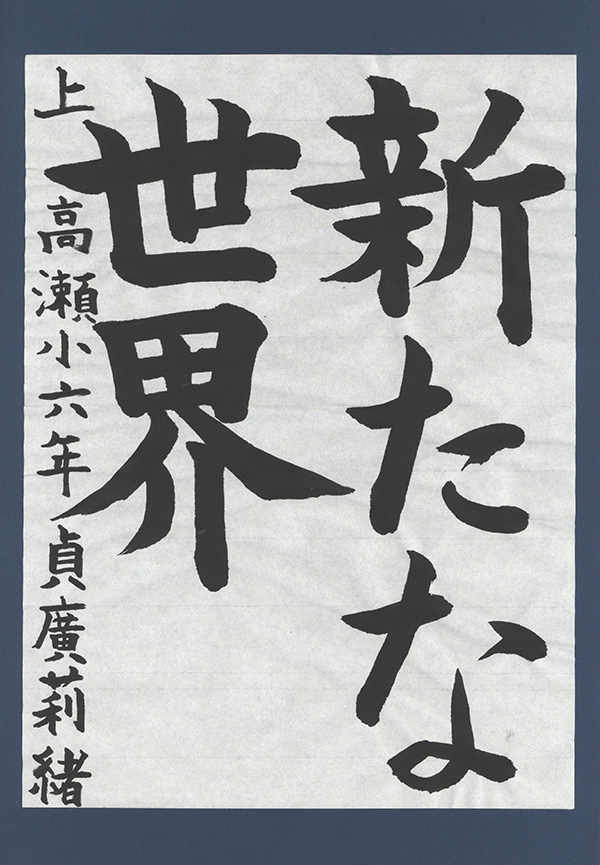 新たな
世界
上高瀬小六年貞廣莉緒